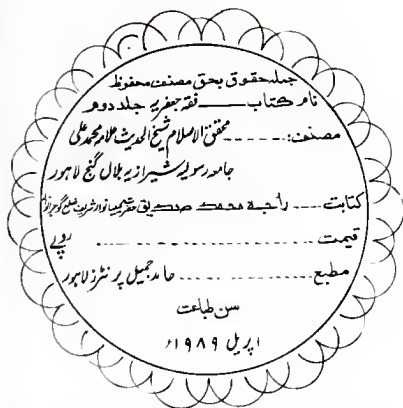 جملہ حقوق بحق مصنف محفوظ
نام کتاب ـــــ فقہ جعفریہ جلد دوم
مصنف: ـ ـ ـ ـ ـ ـ محقق الاسلام شیخ الحدیث علامہ محمد علی
جامعہ رسولیہ شیرازیہ بلال گنج لاہور
کتابت ـ ـ ـ ـ راجہ محمد صدیق حضرت کیلیانوالہ شریف ضلع گوجرانوالہ
قیمت ـ ـ ـ ـ ـ ـ ـ ـ ـ ـ ـ ـ روپے
مطبع ـ ـ ـ ـ ـ ـ ـ حامد جمیل پرنٹرز لاہور
سن طباعت
اپریل ۱۹۸۹ء